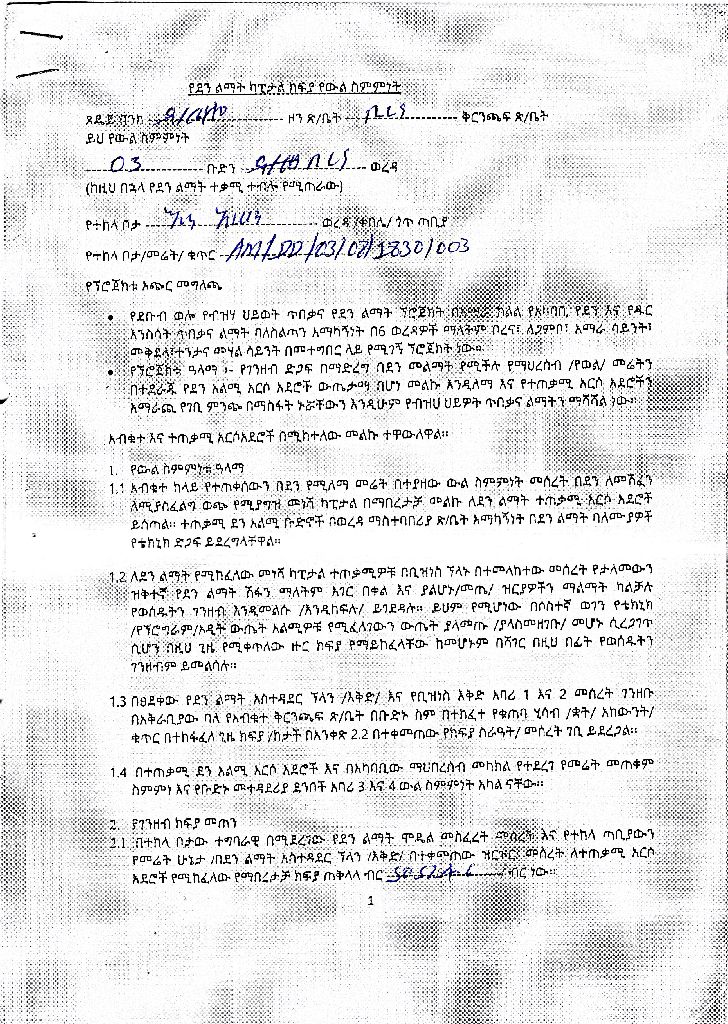 የደን ልማት ካፒታል ክፍያ የውል ስምምነት
ጽዴጅ ባንክ ዞን ጽ/ቤት ቅርንጫፍ ጽ/ቤት
ይህ የውል ስምምነት
03 ቡድን ወረዳ
(ከዚህ በኋላ የደን ልማት ተቃሚ ተብሎ የሚጠራው)
የተከላ ቦታ ወረዳ /ቀበሌ/ ጎጥ ጣቢያ
የተከላ ቦታ/መሬት/ ቁጥር AM/DD/03/07/1830/003
የፕሮጀክቱ አጭር መግለጫ
• የደቡብ ወሎ የብዝሃ ህይወት ጥበቃና የደን ልማት ፕሮጀክት በአማራ ክልል የአካባቢ የደን እና የዱር
እንስሳት ጥበቃና ልማት ባለስልጣን አማካኝነት በ6 ወረዳዎች ማለትም ቦረና፣ ሊጋምቦ፣ አማራ ሳይንት፣
መቅደላ፣ተንታና መሃል ሳይንት በመተግበር ላይ የሚገኝ ፕሮጀክት ነው።
• የፕሮጀክቱ ዓላማ ፡- የገንዘብ ድጋፍ በማድረግ በደን መልማት የሚችሉ የማህረሰብ /የወል/ መሬትን
በተደራጁ የደን አልሚ አርሶ አደሮች ውጤታማ በሆነ መልኩ እንዲለማ እና የተጠቃሚ አርሶ አደሮችን
አማራጪ የገቢ ምንጭ በማስፋት ኑሯቸውን እንዲሁም የብዝሀ ህይዎት ጥበቃና ልማትን ማሻሻል ነው።
አብቁተ እና ተጠቃሚ አርሶአደሮች በሚከተለው መልኩ ተዋውለዋል።
1. የውል ስምምነቱ ዓላማ
1.1 አብቁተ ከላይ የተጠቀሰውን በደን የሚለማ መሬት በተያዘው ውል ስምምነት መሰረት በደን ለመሸፈን
ለሚያስፈልግ ወጭ የሚያግዝ መነሻ ካፒታል በማበረታቻ መልኩ ለደን ልማት ተጠቃሚ አርሶ አደሮች
ይሰጣል። ተጠቃሚ ደን አልሚ ቡድኖች በወረዳ ማስተባበሪያ ጽ/ቤት አማካኝነት በደን ልማት ባለሙያዎች
የቴክኒክ ድጋፍ ይደረግላቸዋል።
1.2 ለደን ልማት የሚከፈለው መነሻ ካፒታል ተጠቃሚዎቹ በቢዝነስ ፕላኑ በተመላከተው መሰረት የታለመውን
ዝቅተኛ የደን ልማት ሽፋን ማለትም አገር በቀል እና ያልሆኑ/መጤ/ ዝርያዎችን ማልማት ካልቻሉ
የወሰዱትን ገንዘብ እንዲመልሱ /እንዲከፍሉ/ ይገደዳሉ። ይህም የሚሆነው በሶስተኛ ወገን የቴክኒክ
/የፕሮግራም/ኦዲት ውጤት አልሚዎቹ የሚፈለገውን ውጤት ያላመጡ /ያላስመዘገቡ/ መሆኑ ሲረጋገጥ
ሲሆን በዚህ ጊዜ የሚቀጥለው ዙር ክፍያ የማይከፈላቸው ከመሆኑም በሻገር በዚህ በፊት የወሰዱትን
ገንዘብም ይመልሳሉ።
1.3 በፀደቀው የደን ልማት አስተዳደር ፕላን /እቅድ/ እና የቢዝነስ እቅድ አባሪ 1 እና 2 መሰረት ገንዘቡ
በአቅራቢያው ባለ የአብቁተ ቅርንጫፍ ጽ/ቤት በቡድኑ ስም በተከፈተ የቁጠባ ሂሳብ /ቋት/ አካውንት/
ቁጥር በተከፋፈለ ጊዜ ክፍያ /ከታች በአንቀጽ 2.2 በተቀመጠው የክፍያ ስርዓት/ መሰረት ገቢ ይደረጋል።
1.4 በተጠቃሚ ደን አልሚ አርሶ አደሮች እና በአካባቢው ማህበረሰብ መካከል የተደረገ የመሬት መጠቀም
ስምምነ እና የቡድኑ መተዳደሪያ ደንቦች አባሪ 3 እና 4 ውል ስምምነት አካል ናቸው።
2. የገንዘብ ክፍያ መጠን
2.1 በተከላ ቦታው ተግባራዊ በሚደረገው የደን ልማት ሞዴል መስፈረት መሰረት እና የተከላ ጣቢያውን
የመሬት ሁኔታ /በደን ልማት አስተዳደር ፕላን /እቅድ/ በተቀመጠው ዝርዝር መሰረት ለተጠቃሚ አርሶ
አደሮች የሚከፈለው የማበረታቻ ክፍያ ጠቅላላ ብር /ብር ነው።
1